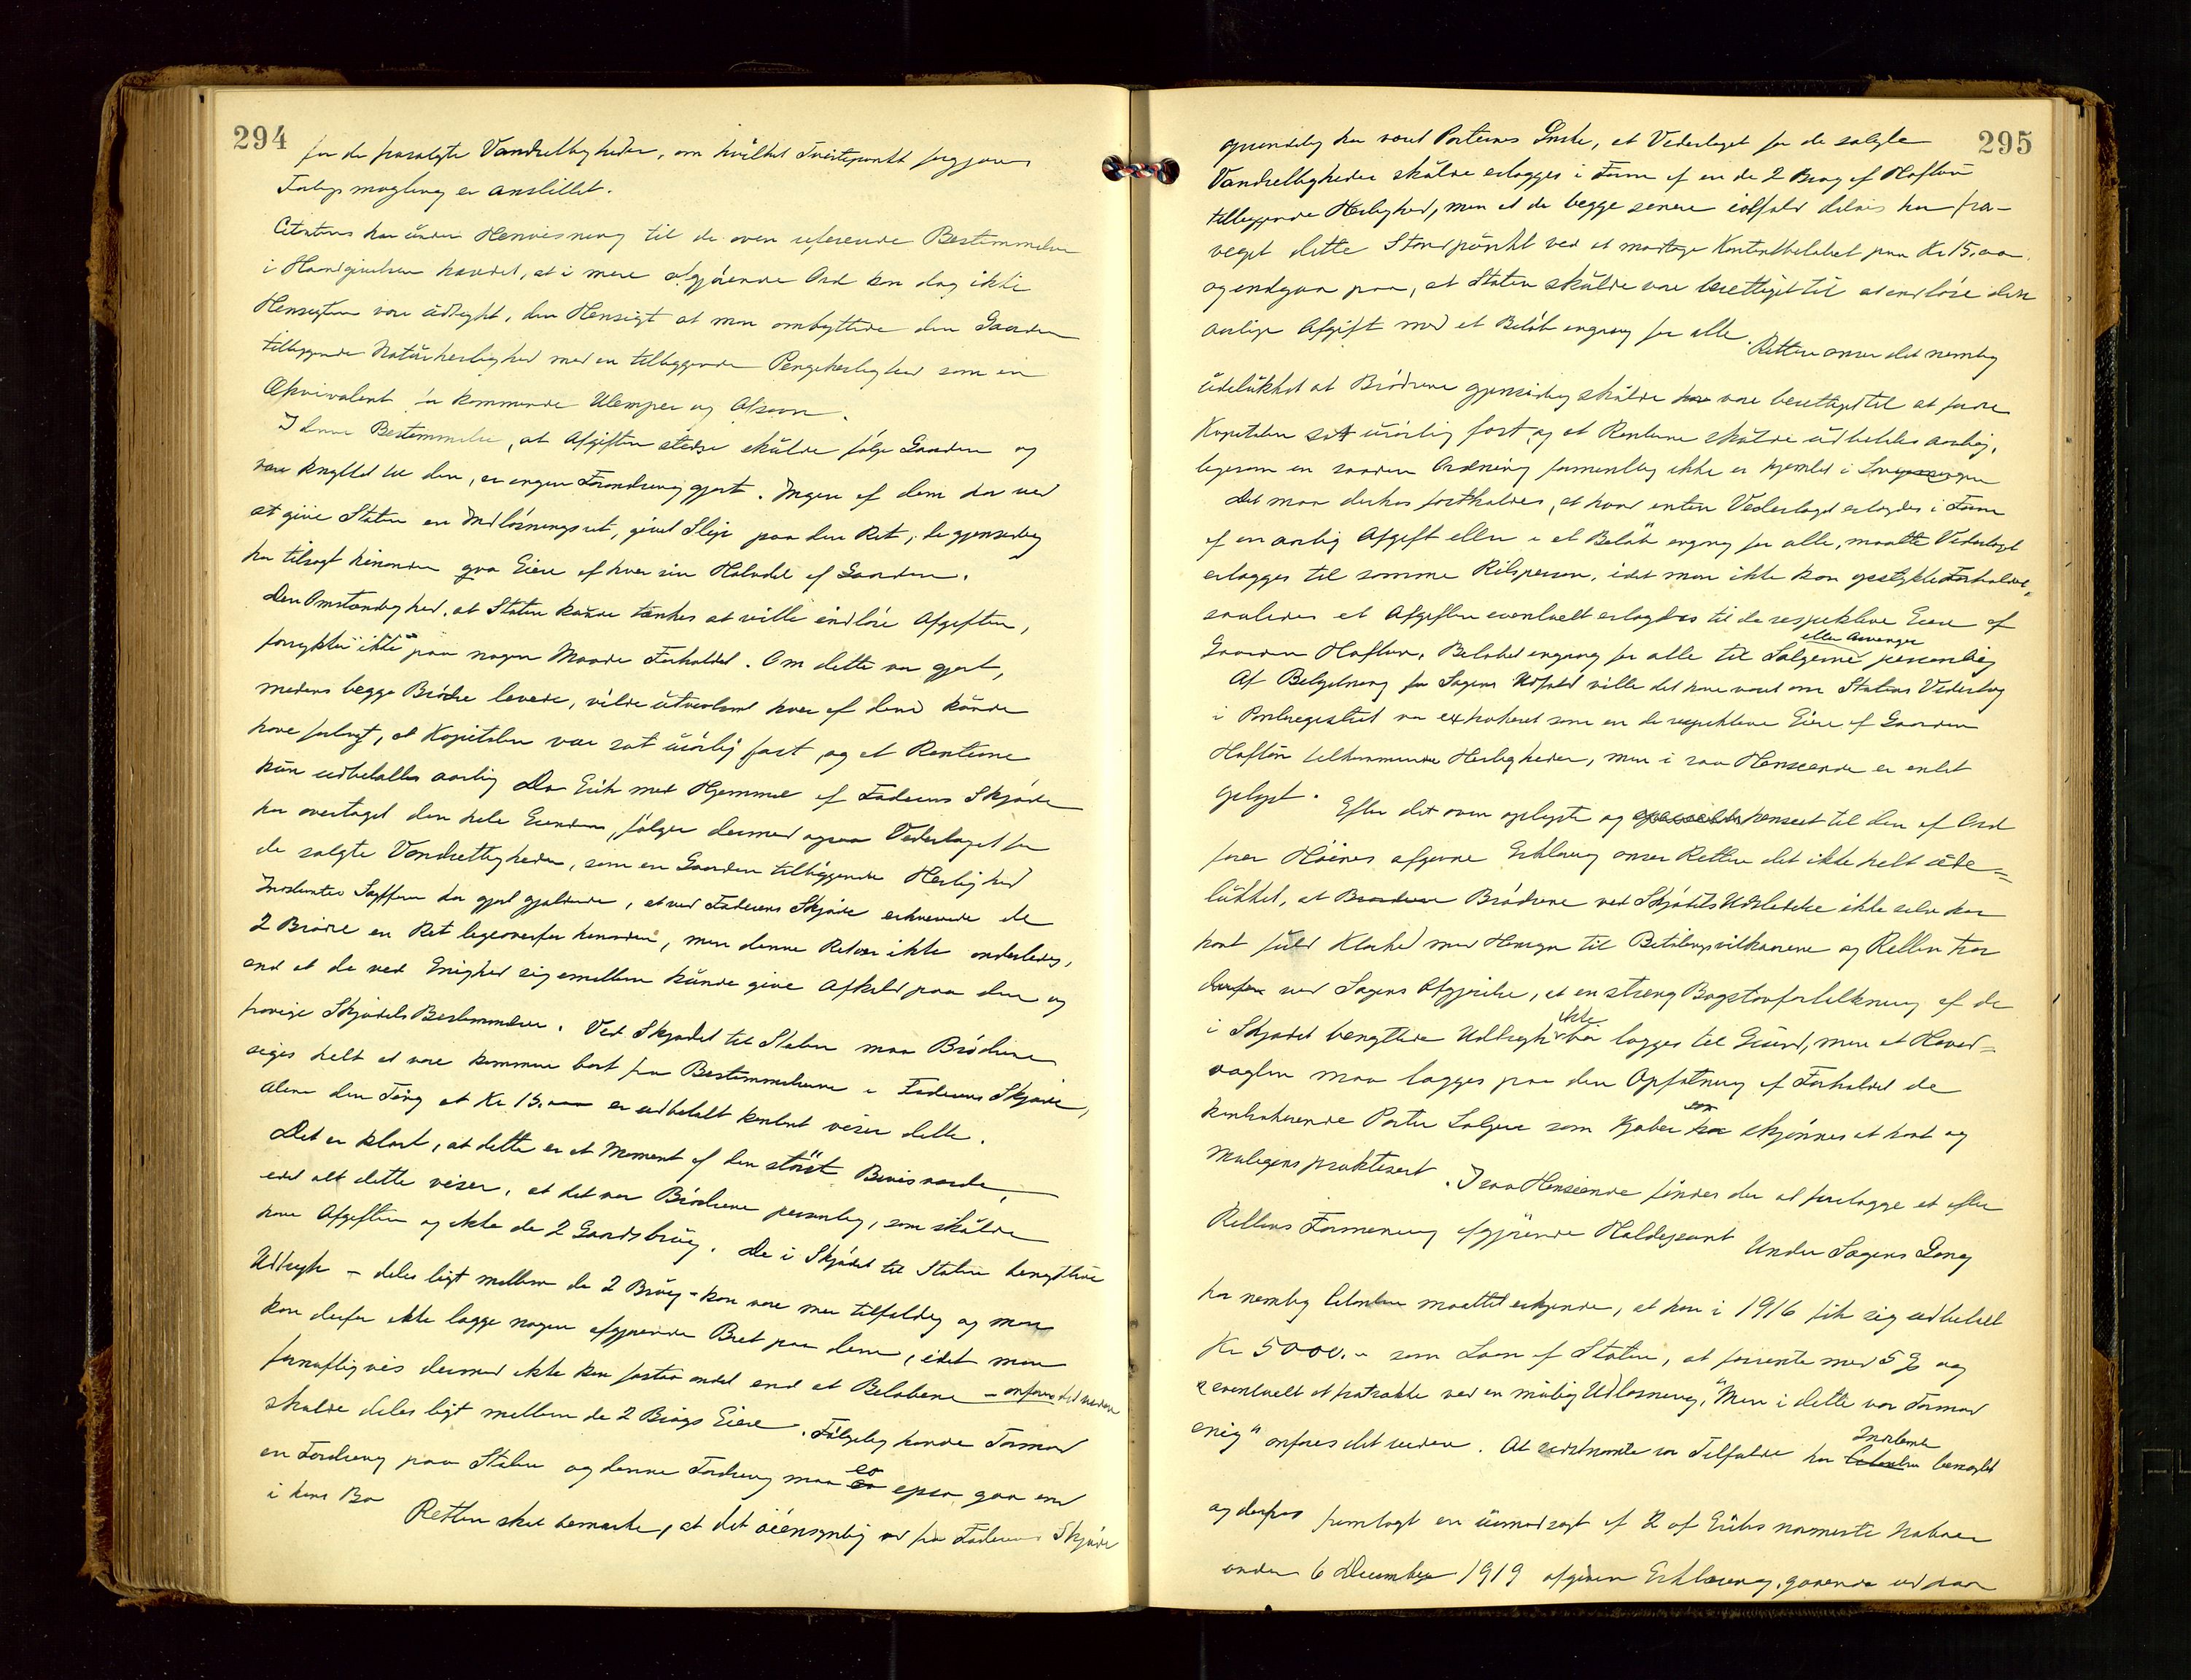 294
for de frasolgte Vandrettigheder, om hvilket Tvistepunkt forgjæves
Forligsmægling er anstillet.
Citatus har under Henvisning til de oven refererede Bestemmelser
i Haandgivelsen hævdet, at i mere afgjørende Ord kan dog ikke
Hensigten være udtrykt, den Hensigt at man ombyttede den Gaarden
tilliggende Naturherlighed med en tilliggende Pengeherlighed som en
Ækvivalent for kommende Ulemper og Afsavn.
I denne Bestemmelse, at Afgiften stedse skulde følge Gaarden og
være knyttet til den, er ingen Forandring gjort. Ingen af dem har ved
at give Staten en Indløsningsret, givet Slip paa den Ret, de gjensidig
har tilsagt hinanden qva Eiere af hver sin Halvdel af Gaarden.
Den Omstændighed, at Staten kunde tænkes at ville indløse Afgiften,
forrykker ikke paa nogen Maade Forholdet. Om dette var gjort,
medens begge Brødre levede, vilde utvivlsomt hver af dem kunde
have forlangt, at Kapitalen var sat urørlig fast, og at Renterne
kun udbetaltes aarlig. Da Erik med Hjemmel af Faderens Skjøde
har overtaget den hele Eiendom, følger dermed ogsaa Vederlaget for
de solgte Vandrettigheder, som en Gaarden tilliggende Herlighed
har gjort gjældende, at ved Faderens Skjøde erhvervede de
2 Brødre en Ret ligeoverfor hinanden, men denne Ret var ikke anderledes,
end at de ved Enighed sig imellem kunde give Afkald paa den og
forrige Skjødets Bestemmelser. Ved Skjødet til Staten maa Brødrene
siges helt at være kommen bort fra Bestemmelserne i Faderens Skjøde,
alene den Ting at Kr. 15.000 er udbetalt kontant viser dette.
Det er klart, at dette er et Moment af den største Bevisværdi,
idet alt dette viser, at det var Brødrene personlig, som skulde
have Afgiften og ikke de 2 Gaardsbrug. De i Skjødet til Staten benyttede
Udtryk – deles ligt mellem de 2 Brug – kan være mer tilfældig og man
kan derfor ikke lægge nogen afgjørende Vægt paa dem, idet man
fornuftigvis dermed ikke kan forstaa andet end at Beløbene – anføres det videre
skulde deles ligt mellem de 2 Brugs Eiere. Følgelig havde Tormod
en Fordring paa Staten og denne Fordring maa eo ipso gaa ind
i hans Bo
Retten skal bemærke, at det øiensynlig ved fra Faderens Skjøde
295
oprindelig har været Parternes Ønske, at Vederlaget for de solgte
Vandrettigheder skulde erlægges i Form af en de 2 Brug af Haftun
tilliggende Herlighed, men at de begge senere ialfald delvis har fra-
veget dette Standpunkt ved at modtage Kontantbeløbet paa Kr. 15.000
og indgaa paa, at Staten skulde være berettiget til at indløse den
aarlige Afgift med et Beløb engang for alle. Retten anser det nemlig
udelukket at Brødrene gjensidig skulde være berettiget til at fordre
Kapitalen sat urørlig fast, og at Renterne skulde udbetales aarlig,
ligesom en saadan Ordning formentlig ikke er hjemlet i Lovgivningen
Det maa derhos fastholdes, at hvad enten Vederlaget erlagdes i Form
af en aarlig Afgift eller i et Beløb engang for alle, maatte Vederlaget
erlægges til samme Retsperson, idet man ikke kan opstykke Forholdet,
saaledes at Afgiften eventuelt erlagdes til de respektive Eiere af
Gaarden Haftun, Beløbet engang for alle til Sælgerne eller Arvinger personlig
Af Betydning for Sagens Udfald ville det have været om Statens Vederlag
i Panteregistret var extraheret som en de respektive Eiere af Gaarden
Haftun tilkommende Herligheder, men i saa Henseende er intet
oplyst.
Efter det oven oplyste og henseet til den af Ord
fører Høines afgivne Erklæring anser Retten det ikke helt ude-
lukket, at Brødrene ved Skjødets Udstedelse ikke selv har
havt fuld Klarhed med Hensyn til Betalingsvilkaarene og Retten tror
derfor ved Sagens Afgjørelse, at en streng Bogstavfortolkning af de
i Skjødet benyttede Udtryk ikke bør lægges til Grund, men at Hoved-
vægten maa lægges paa den Opfatning af Forholdet de
kontraherende Parter Sælgere som Kjøber kan skjønnes at havt og
muligens praktisert. I saa Henseende findes der at foreligge et efter
Rettens Formening afgjørende Holdepunkt Under Sagens Gang
har nemlig Citanten maattet erkjende, at han i 1916 fik sig udbetalt
Kr 5000.– som Laan af Staten, at forrente med 5 % og
"eventuelt at fratrække ved en mulig Udløsning." Men i dette var Tormod
enig" anføres det videre. At sidstnævnte var Tilfælde har benægtet
og derfor fremlagt en uimodsagt af 2 af Eriks nærmeste Naboer
under 6 December 1919 afgiven Erklæring, gaaende ud paa